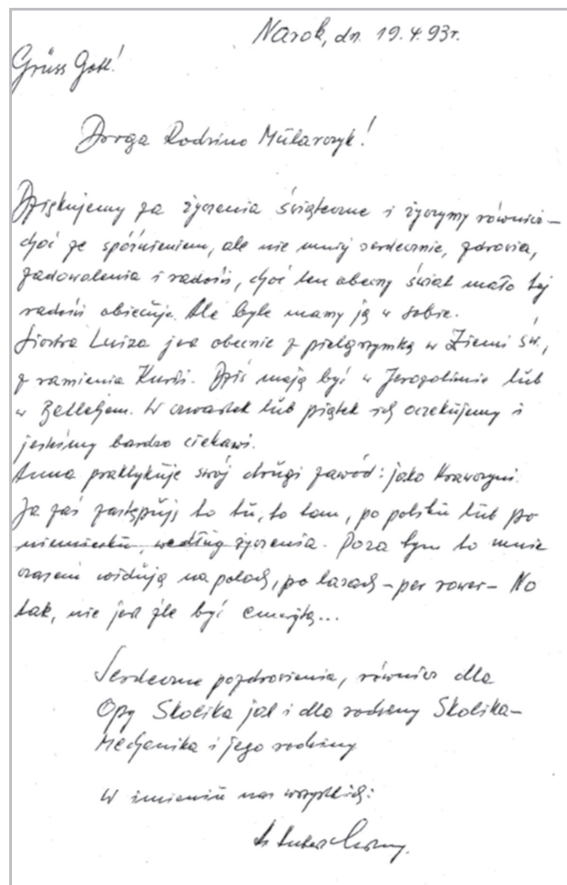 Narok, dn. 19.4.93r.
Grüss Gott!
Droga Rodzino Mūlarczyk!
Dziękujemy za życzenia świąteczne i życzymy również –
choć ze spóźnieniem, ale nie mniej serdecznie, zdrowia,
zadowolenia i radości, choć ten obecny świat mało tej
radości obiecuje. Ale byle mamy ją w sobie.
Siostra Luiza jest obecnie z pielgrzymką w Ziemi Św.,
z ramienia Kurii. Dziś mają być w Jerozolimie lub
w Betlejem. W czwartek lub piątek ich oczekujemy i
jesteśmy bardzo ciekawi.
Anna praktykuje swój drugi zawód: jako Krawczyni.
Ja zaś zastępuję to tū, to tam, po polskū lub po
niemieckū, wedlūg życzenia. Poza tym to mnie
czasem widują na polach, po lasach – per rower – No
tak, nie jest źle być emerytą...
Serdeczne pozdrowienia, również dla
Opy Skolika jak i dla rodziny Skolika–
Mechanika i jego rodziny
W imieniū nas wszystkich: